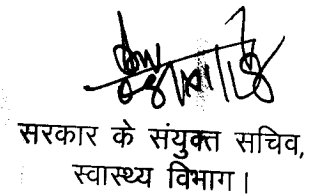 सरकार के संयुक्त सचिव,
स्वास्थ्य विभाग।